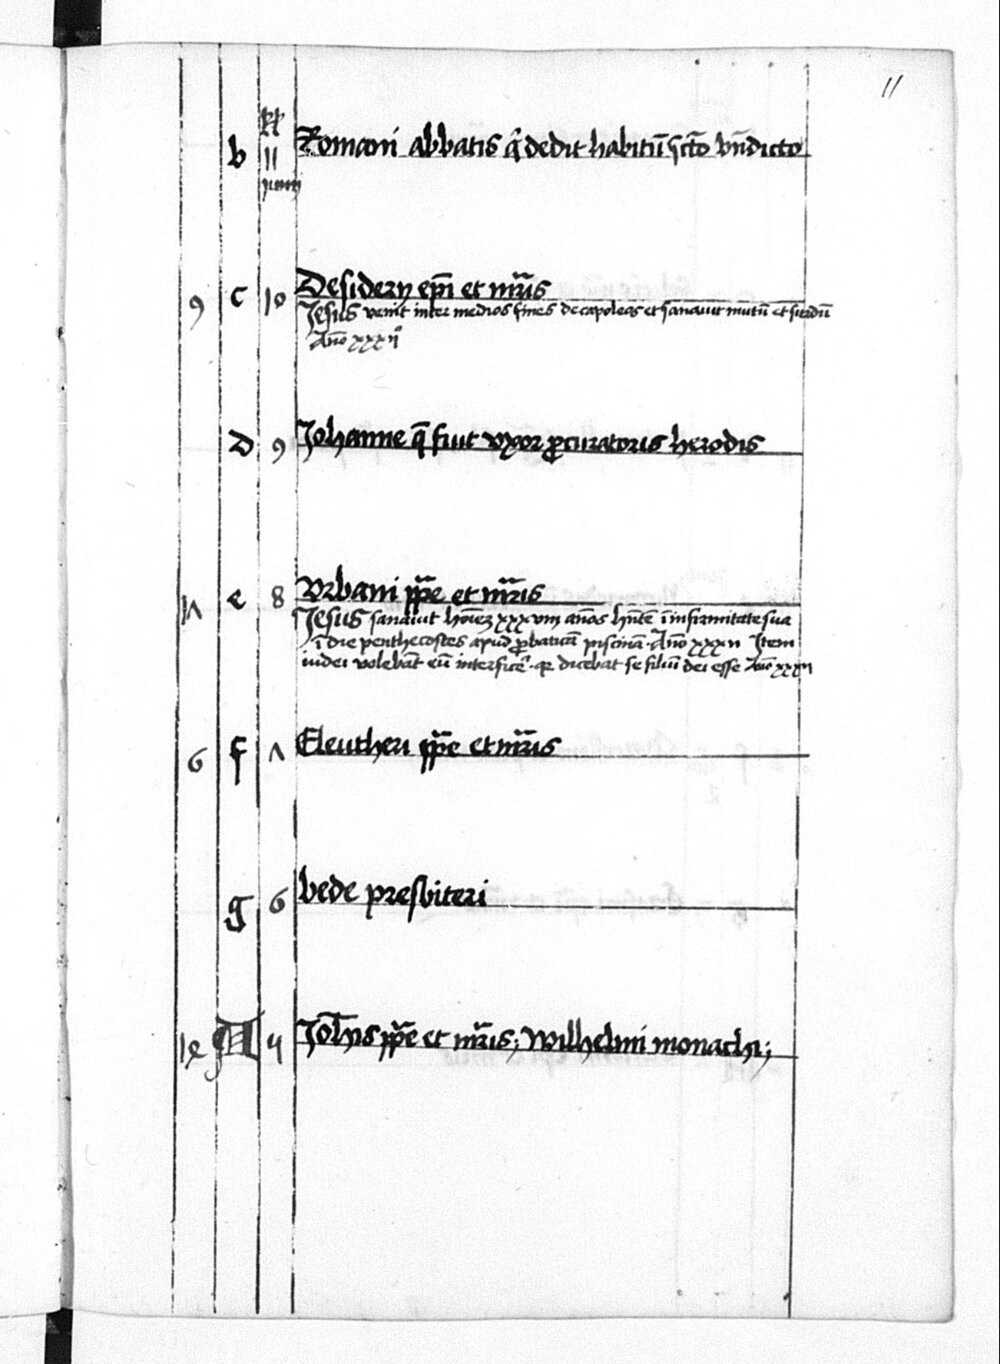 11
kł
b 11 Romani abbatis q̄ dedit habitū scō bn̄dicto
Junij
9 c 10 Desiderij ep̄i et mr̄is
Jesus venit inter medios fines decapoleos et sanauit mutū et surdū
Año xxxij°
D 9 Johanne q̄ fuit vxor ꝓcuratoris herodis
1ʌ e 8 Vrbani pp̄e et mr̄is
Jesus sanauit hōiēz xxxviij años hn̄tē ī infirmitate sua
ī die penthecostes apud ꝓbaticā piscinā. Año xxxij Item
iudei volebāt eū interficē. qr dicebat se filiū dei esse Año xxxij
6 f ʌ Eleutheri pp̄e et mr̄is
g 6 bede presbiteri
1ꝛ A 4 Joh̄is pp̄e et mr̄is; Wilhelmi monachi;